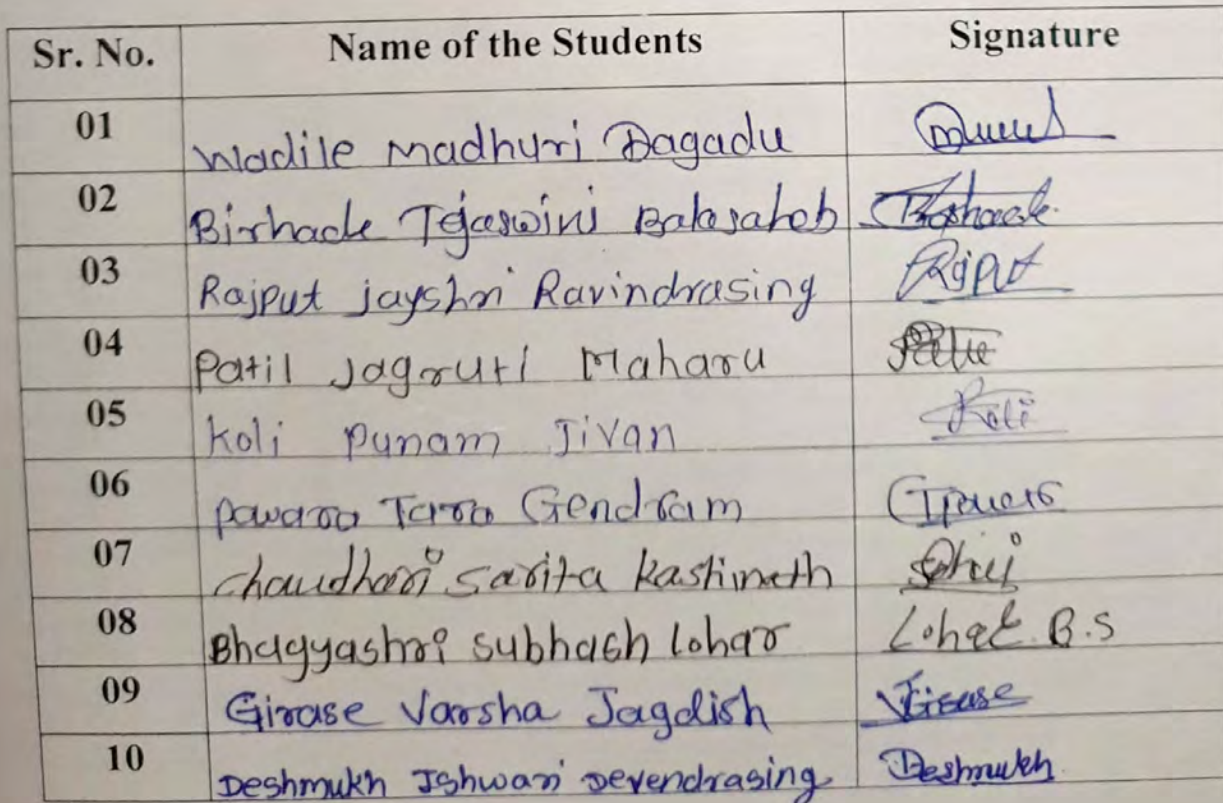 Sr. No. Name of the Students Signature
01 Wadile Madhuri Dagadu
02 Birhade Tejaswini Balasaheb
03 Rajput jayshri Ravindrasing Rajput
04 Patil Jagruti Maharu
05 Koli Punam Jivan Koli
06 Pawara Tara Gendram
07 Chaudhari Sarita Kashinath
08 Bhagyashri Subhash Lohar Lohar B.S
09 Girase Varsha Jagdish Girase
10 Deshmukh Ishwari Devendrasing Deshmukh